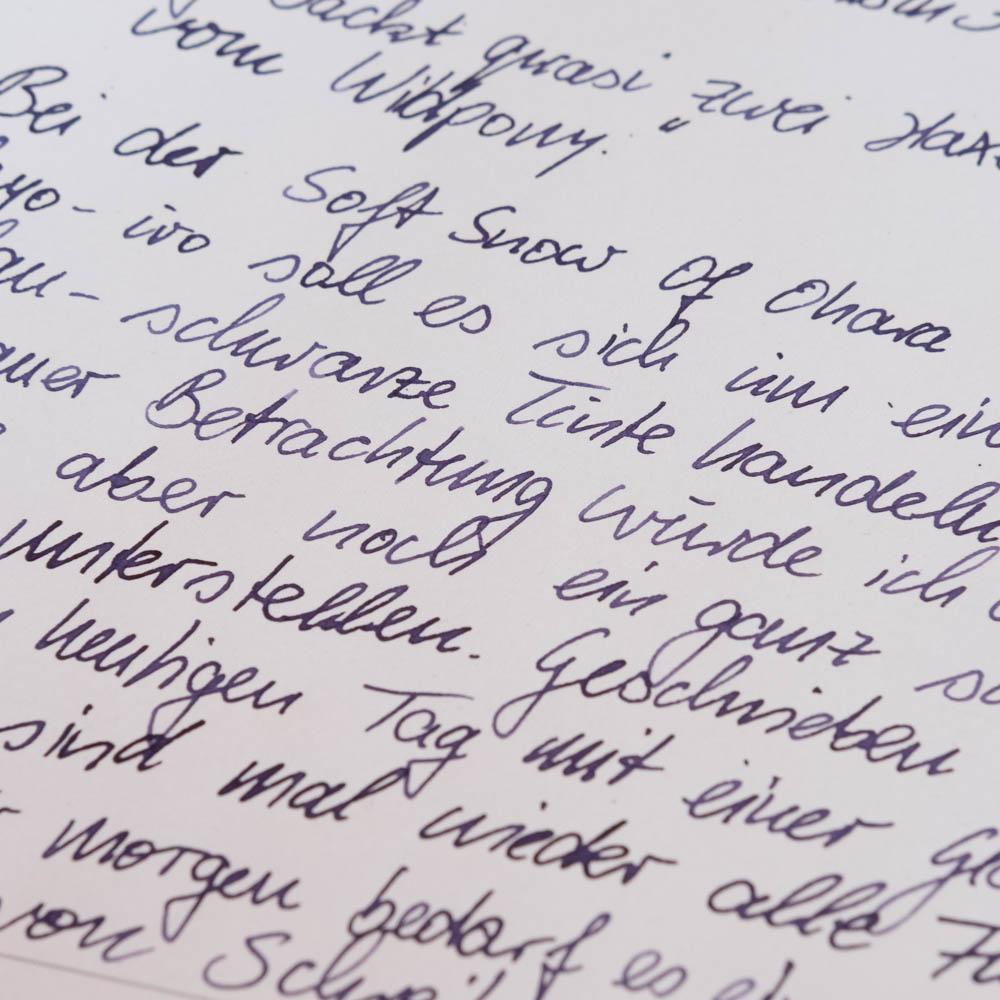 quasi „zwei
vom Wildpony."
Bei der Soft Snow of Ohara
wo soll es sich um ein
schwarze Tinte handeln
Betrachtung würde ich
aber noch ein ganz
unterstellen. Geschrieben
heutigen Tag mit einer
sind mal wieder alle
morgen bedarf es
von